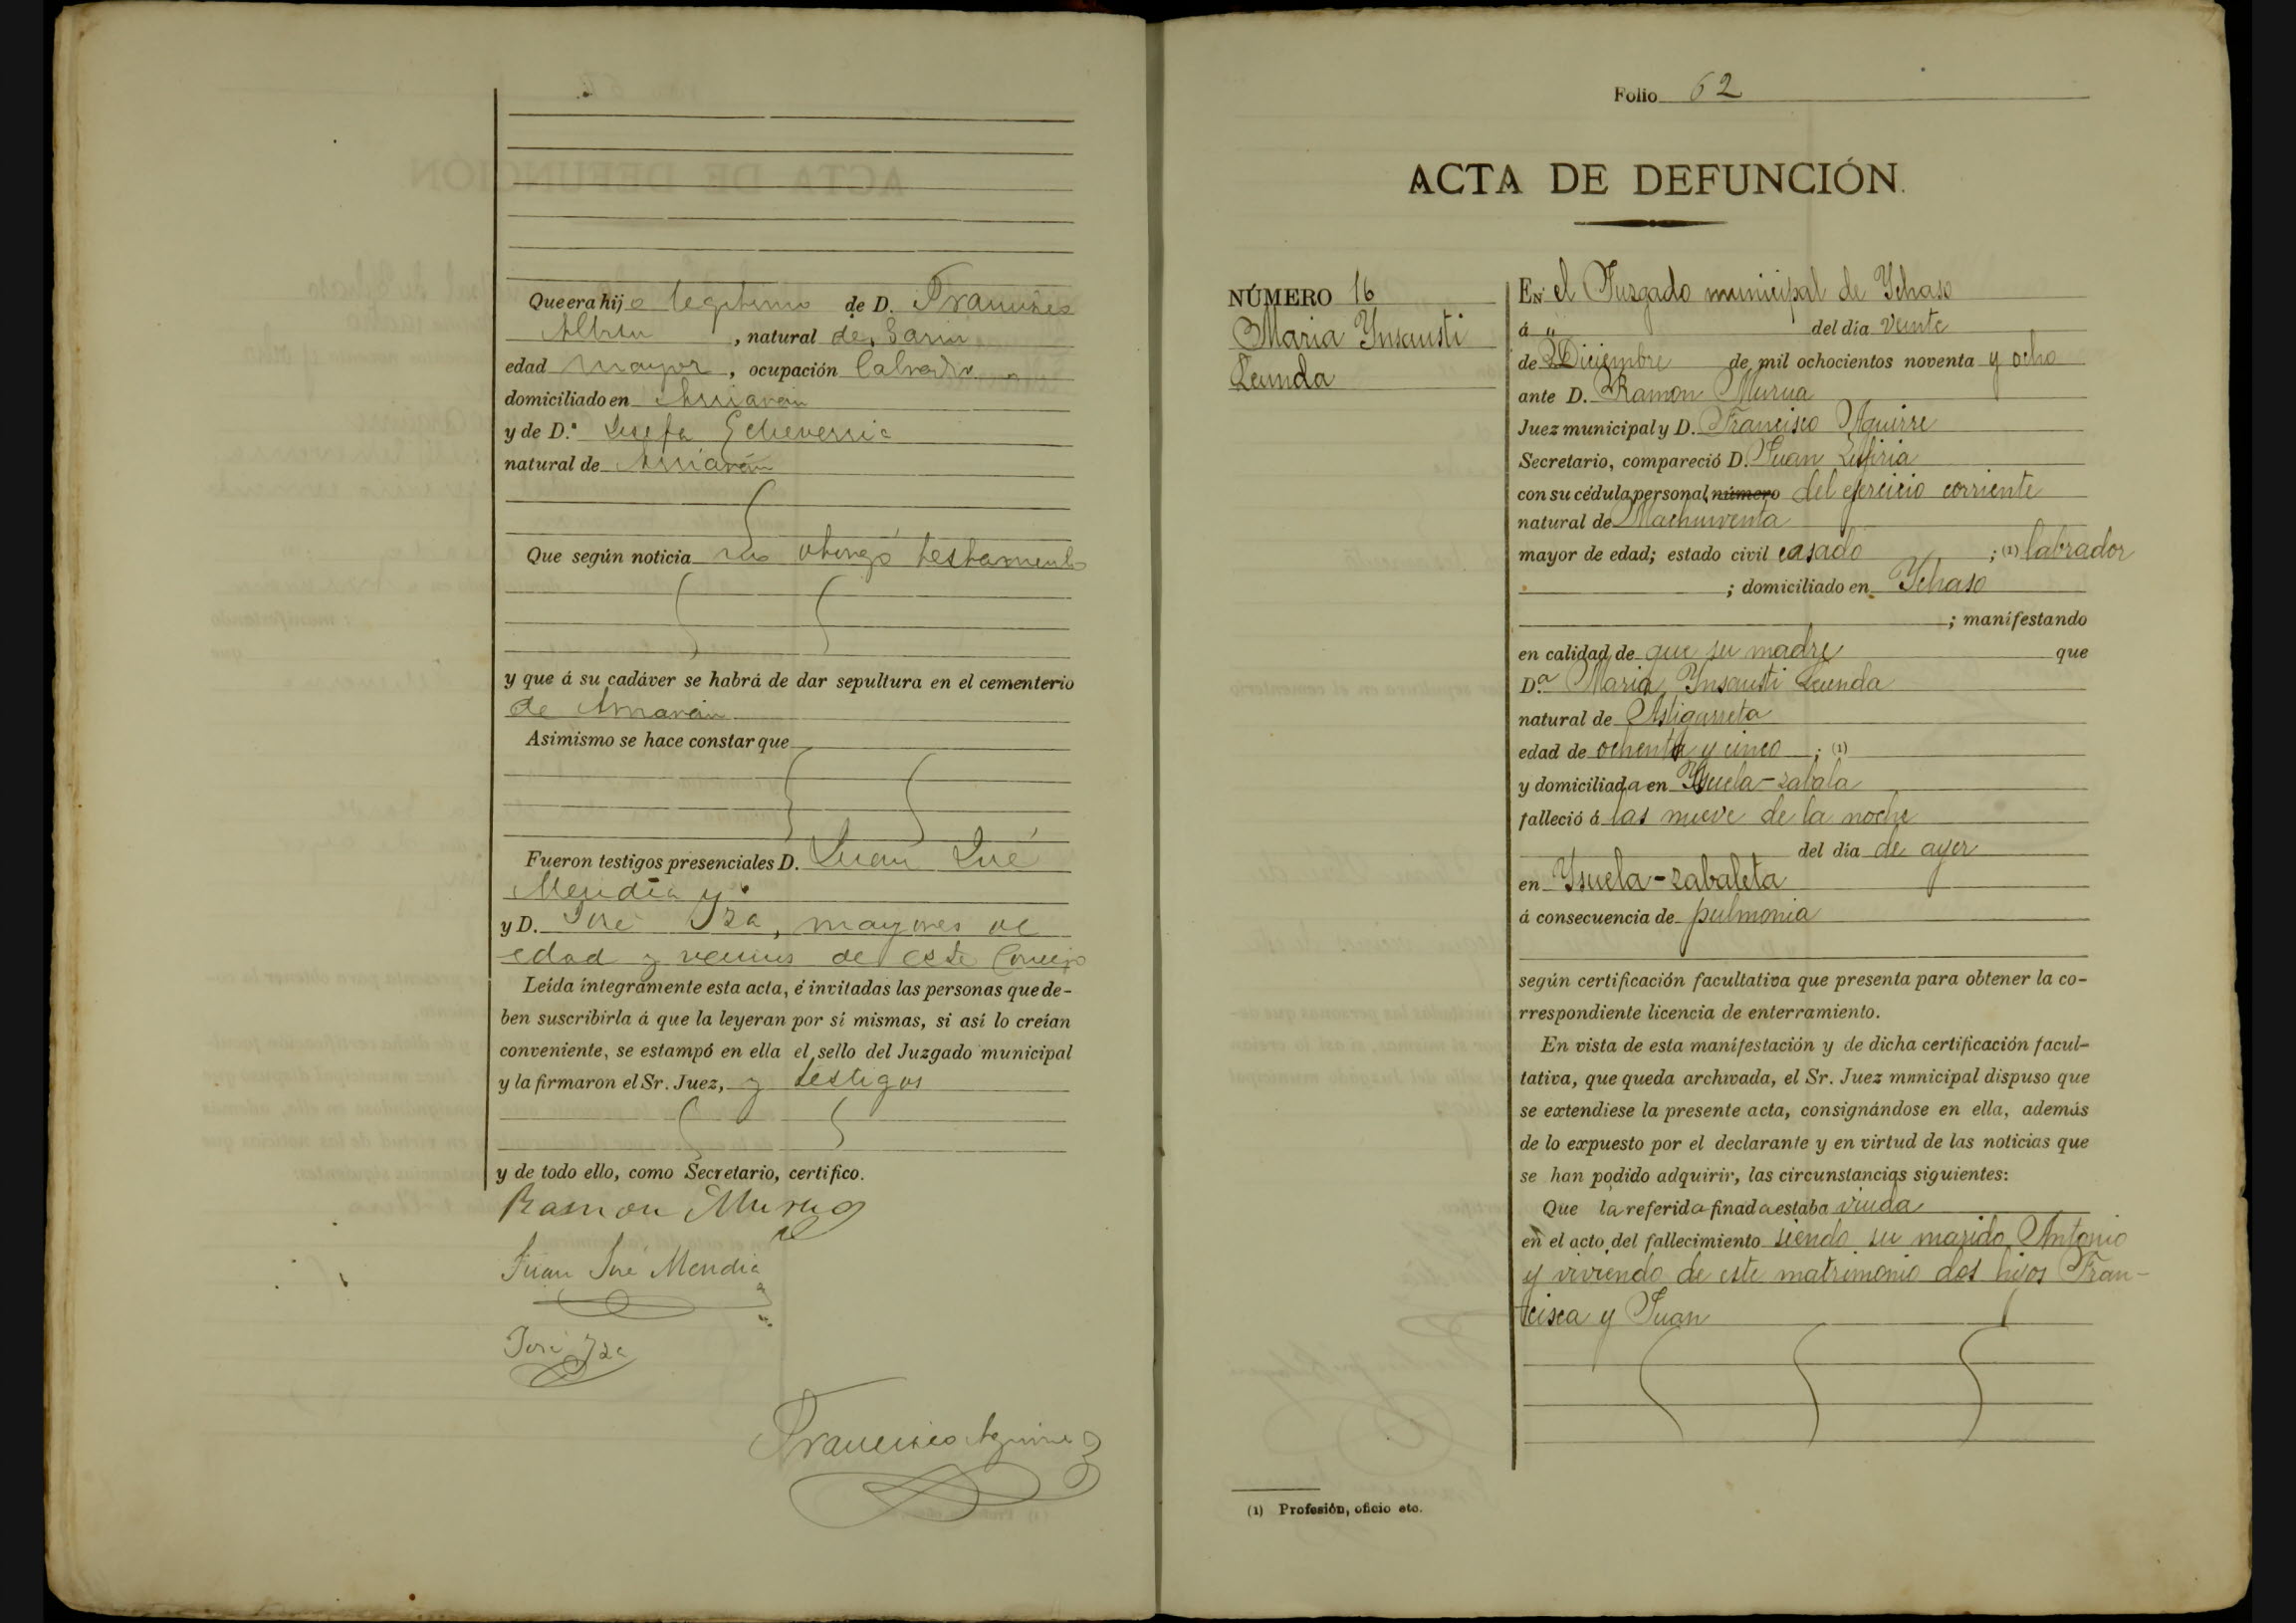 Que era hijo legitimo de D. Francisco
, natural de
edad mayor, ocupación labrador
domiciliado en
y de D.ª Josefa Echeverria
natural de
Que según noticia no otorgó testamento
y que á su cadáver se habrá de dar sepultura en el cementerio
de
Asimismo se hace constar que
Fueron testigos presenciales D. Juan José
Mendia y
y D. José Yza, mayores de
edad y vecinos de este Concejo
Leída íntegramente esta acta, é invitadas las personas que de-
ben suscribirla á que la leyeran por sí mismas, si así lo creían
conveniente, se estampó en ella el sello del Juzgado municipal
y la firmaron el Sr. Juez, y testigos
y de todo ello, como Secretario, certifico.
Ramon Murua
Juan José Mendia
José Yza
Francisco Aguirre
Folio 62
ACTA DE DEFUNCIÓN.
NÚMERO 16
Maria Ynsausti
Lecunda
EN el Juzgado municipal de Ychaso
á " del día veinte
de Diciembre de mil ochocientos noventa y ocho
ante D. Ramon Murua
Juez municipal y D. Francisco Aguirre
Secretario, compareció D. Juan
con su cédula personal número del ejercicio corriente
natural de Machinventa
mayor de edad; estado civil casado ; (1) labrador
; domiciliado en Ychaso
; manifestando
en calidad de que su madre que
D.ª Maria Ynsausti Lecunda
natural de Astigarreta
edad de ochenta y cinco ; (1)
y domiciliada en Ysuela-zabala
falleció á las nueve de la noche
del día de ayer
en Ysuela-zabaleta
á consecuencia de pulmonia
según certificación facultativa que presenta para obtener la co-
rrespondiente licencia de enterramiento.
En vista de esta manifestación y de dicha certificación facul-
tativa, que queda archivada, el Sr. Juez mnnicipal dispuso que
se extendiese la presente acta, consignándose en ella, además
de lo expuesto por el declarante y en virtud de las noticias que
se han podido adquirir, las circunstancias siguientes:
Que la referida finada estaba viuda
en el acto del fallecimiento siendo su marido Antonio
y viviendo de este matrimonio dos hijos Fran-
cisca y Juan
(1) Profesión, oficio etc.